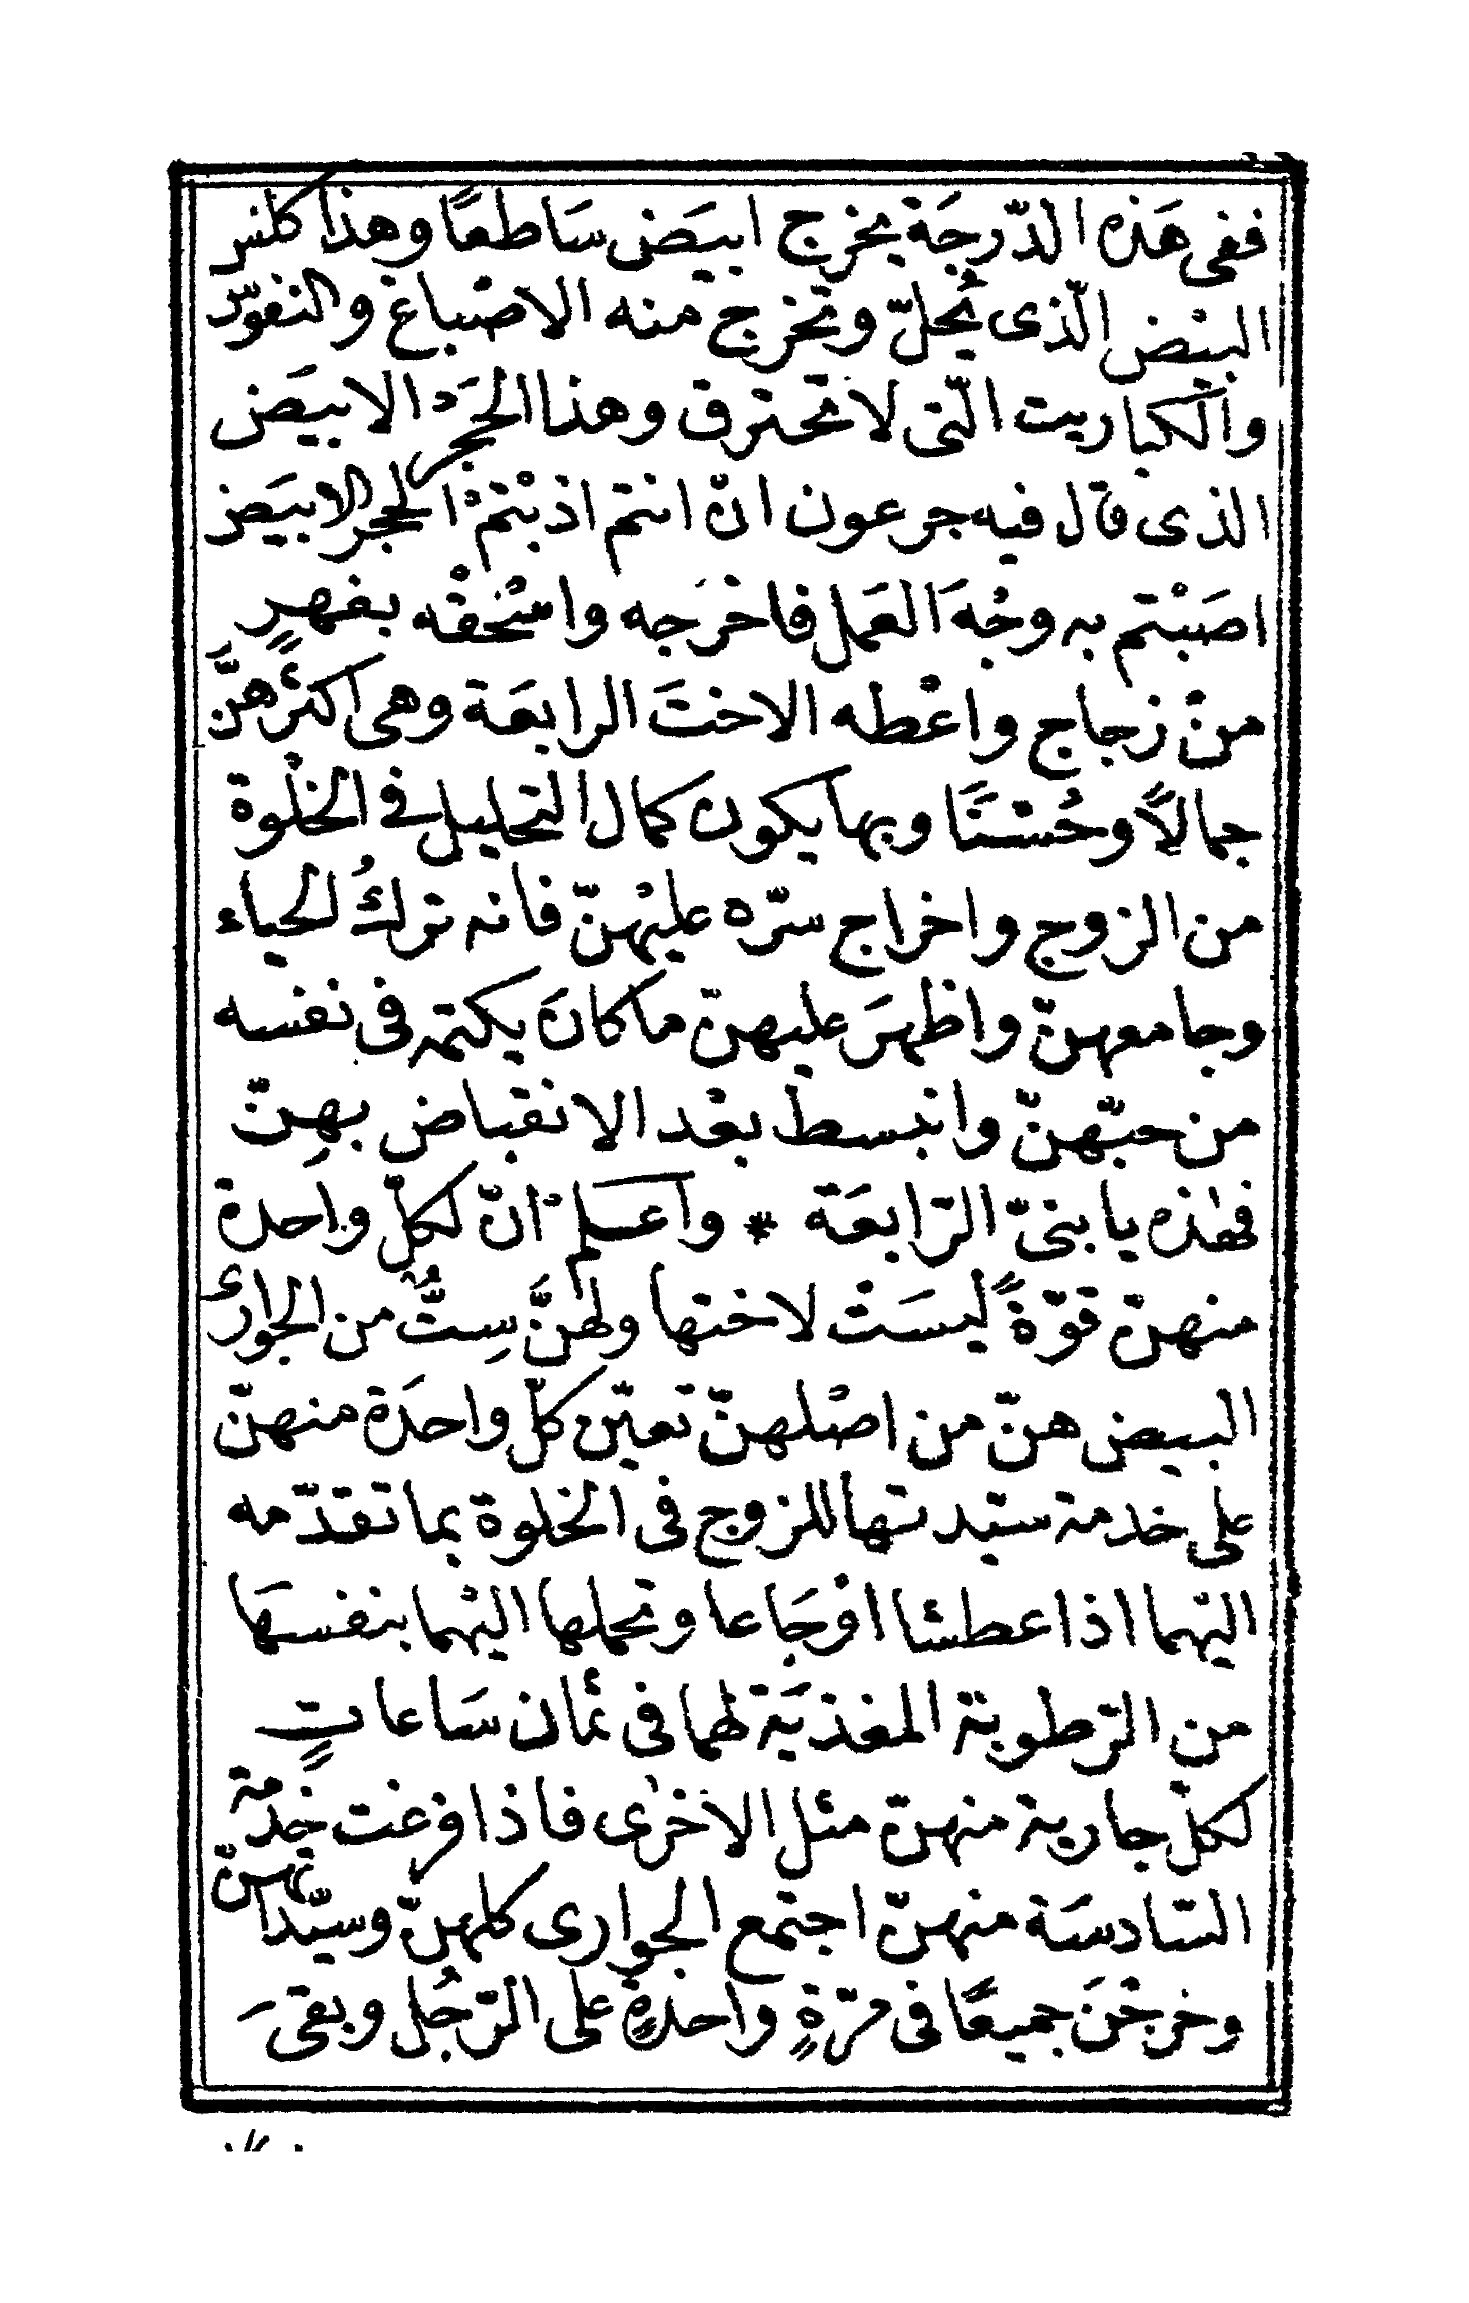 ففى هَذه الدّرجَة يخرج ابيَض سَاطعًا وهذا كلس
البيْض الّذى يُحلّ وتخرج منه الاصْباغ والنفوّد
والكباريت الّتى لا تحترق وهذا الحجَر الابيَض
الذى قال فيه جرعون انّ انتم اذبْتمْ الحجر الابيَض
اصَبْتم به وجْهَ العَمل فاخرَجه واسْحقْه بفهرٍ
منْ زجاج واعْطه الاختَ الرابعَة وهى اكثرهنَّ
جمالًا وحُسْنًا وبها يكون كمال التحليل فى الخلْوة
من الزوج واخراج سّره عليْهنّ فانه تركُ الحياء
وجامعهنّ واظهرَ عليهنّ ما كانَ يكتمه فى نفسه
من حبّهنّ وانبسط بعْد الانقباض بهِنّ
فهٰذه يا بنىّ الرّابعَة * واعلم انّ لكلّ واحدة
منهنّ قوّةً ليسَتْ لاختها ولهنَّ سِتٌّ من الجوارى
البيض هنّ من اصْلهنّ تعين كلّ واحدَة منهنّ
على خدمة سيّدتها للزوج فى الخلوة بما تقدّمه
اليْهما اذا عطشا اوْ جَاعا وتحملها اليْهما بنفسهَا
من الرّطوبة المغذيَة لهما فى ثمان سَاعاتٍ
لكلّ جارية منهنّ مثل الاخرٰى فاذا فرغت خدمة
السّادسَة منهنّ اجتمع الجوارى كلهنّ وسيّداتهنّ
وخرجْنَ جميعًا فى مرّةٍ واحدةٍ على الرّجُل وبقىَ